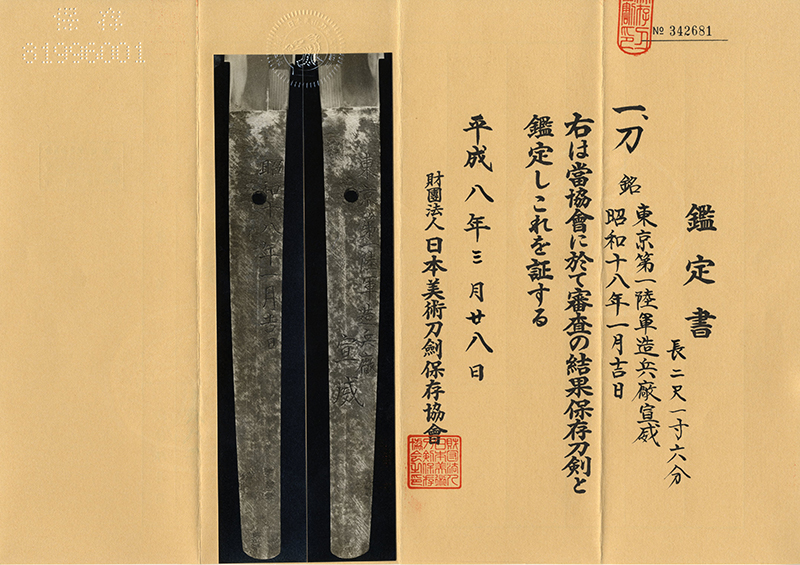 保存
81996001
№ 342681
鑑定書
長二尺一寸六分
一、刀 銘 東京第一陸軍造兵廠宣威
昭和十八年一月吉日
右は當協會に於て審査の結果保存刀剣と
鑑定しこれを証する
平成八年三月廿八日
財團法人日本美術刀劍保存協會
東京第一陸軍造兵廠
宣威
昭和十八年一月吉日